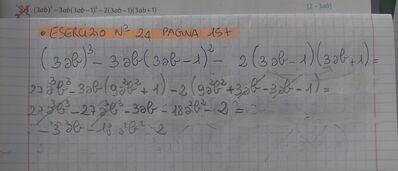 24 (3ab)³ − 3ab(3ab−1)² − 2(3ab−1)(3ab+1) [2 − 3ab]
• ESERCIZIO N° 24 PAGINA 157
(3ab)³ − 3ab(3ab−1)² − 2(3ab−1)(3ab+1) =
27a³b³ − 3ab(9a²b² + 1) − 2(9a²b² + 3ab − 3ab − 1) =
27a³b³ − 27a³b³ − 3ab − 18a²b² − 2 =
− 3ab − 18a²b² 2